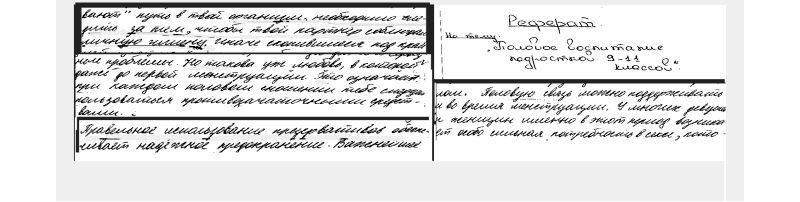 вают" путь в твой организм. Необходимо сле-
дить за тем, чтобы твой партнёр соблюдал
личную гигиену. Иначе скопившиеся под
ное проблемы. Но такова уж любовь, в которой
даже до первой менструации. Это означает:
при каждом половом сношении тебе следует
пользоваться противозачаточными средст-
вами.
Правильное использование презервативов обес-
чивает надёжное предохранение. Важнейшее
Реферат.
На тему.
„Половое воспитание
подростков 9-11
классов".
Половую связь можно поддерживать
и во время менструации. У многих девушек
и женщин именно в этот период возника
ет особо сильная потребность в сексе, кото-